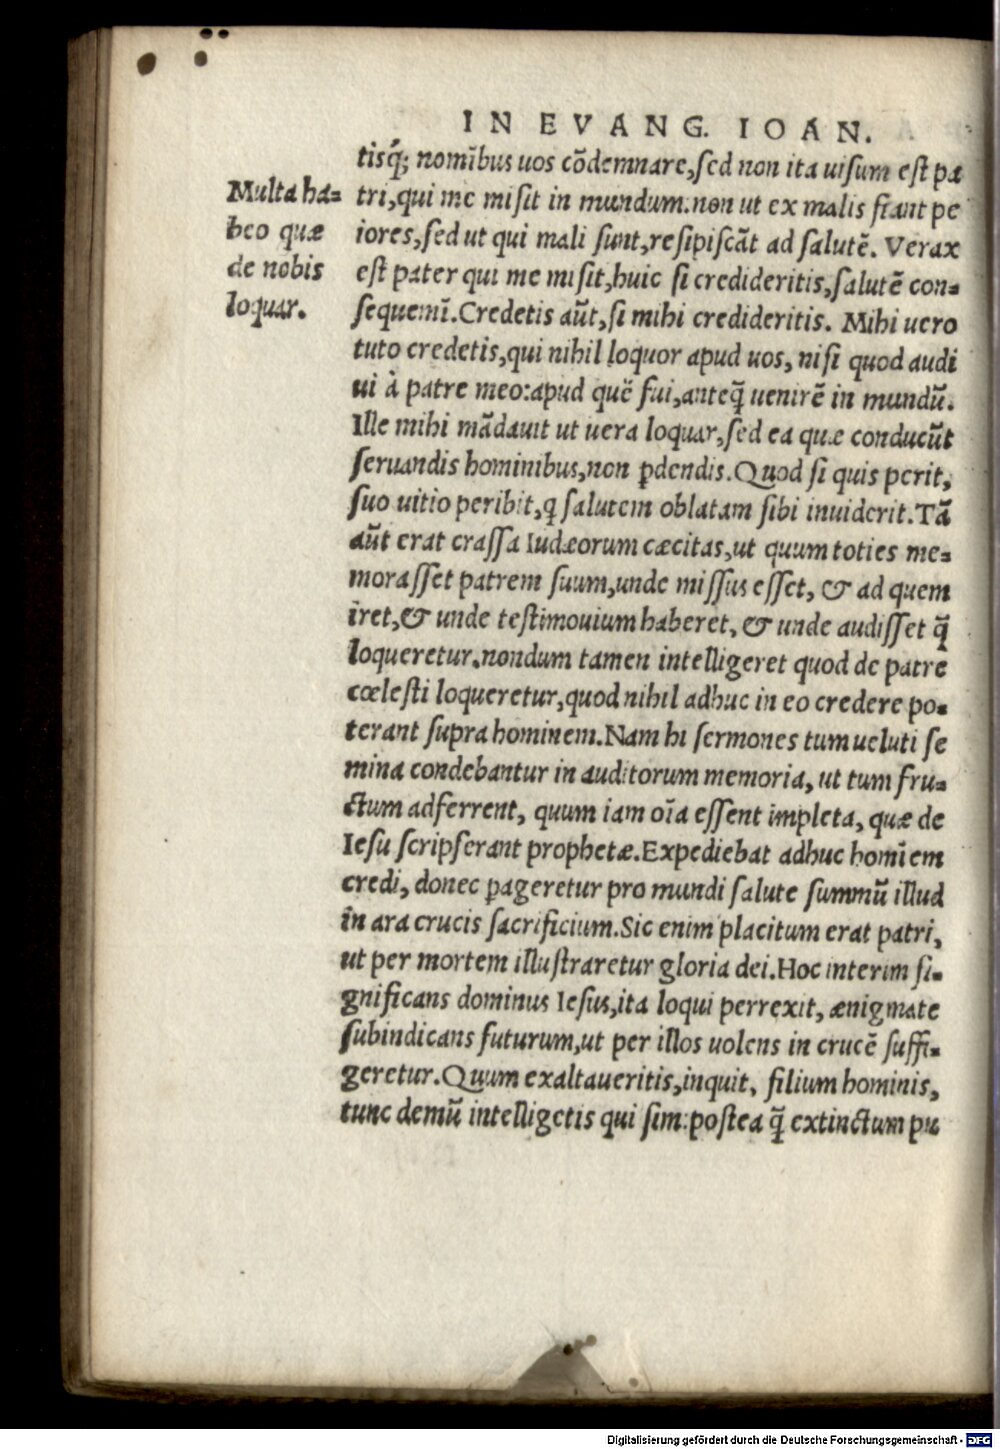 IN EVANG. IOAN.
Multa ha=
beo quæ
de nobis
loquar.
tisq́; nomĩbus uos cõdemnare, sed non ita uisum est pa
tri, qui me misit in mundum: non ut ex malis fiant pe
iores, sed ut qui mali sunt, resipiscãt ad salutẽ. Verax
est pater qui me misit, huic si credideritis, salutẽ con=
sequemĩ. Credetis aũt, si mihi credideritis. Mihi uero
tuto credetis, qui nihil loquor apud uos, nisi quod audi
ui à patre meo: apud quẽ fui, anteq̃ uenirẽ in mundũ.
Ille mihi mãdauit ut uera loquar, sed ea quæ conducũt
seruandis hominibus, non ꝑdendis. Quod si quis perit,
suo uitio peribit, q salutem oblatam sibi inuiderit. Tã
aũt erat crassa Iudæorum cæcitas, ut quum toties me=
morasset patrem suum, unde missus esset, & ad quem
iret, & unde testimouium haberet, & unde audisset q̃
loqueretur. nondum tamen intelligeret quod de patre
cœlesti loqueretur, quod nihil adhuc in eo credere po=
terant supra hominem. Nam hi sermones tum ueluti se
mina condebantur in auditorum memoria, ut tum fru=
ctum adferrent, quum iam oĩa essent impleta, quæ de
Iesu scripserant prophetæ. Expediebat adhuc homĩem
credi, donec ꝑageretur pro mundi salute summũ illud
in ara crucis sacrificium. Sic enim placitum erat patri,
ut per mortem illustraretur gloria dei. Hoc interim si=
gnificans dominus Iesus, ita loqui perrexit, ænigmate
subindicans futurum, ut per illos uolens in crucẽ suffi=
geretur. Quum exaltaueritis, inquit, filium hominis,
tunc demũ intelligetis qui sim: postea q̃ extinctum pu
Digitalisierung gefördert durch die Deutsche Forschungsgemeinschaft - DFG